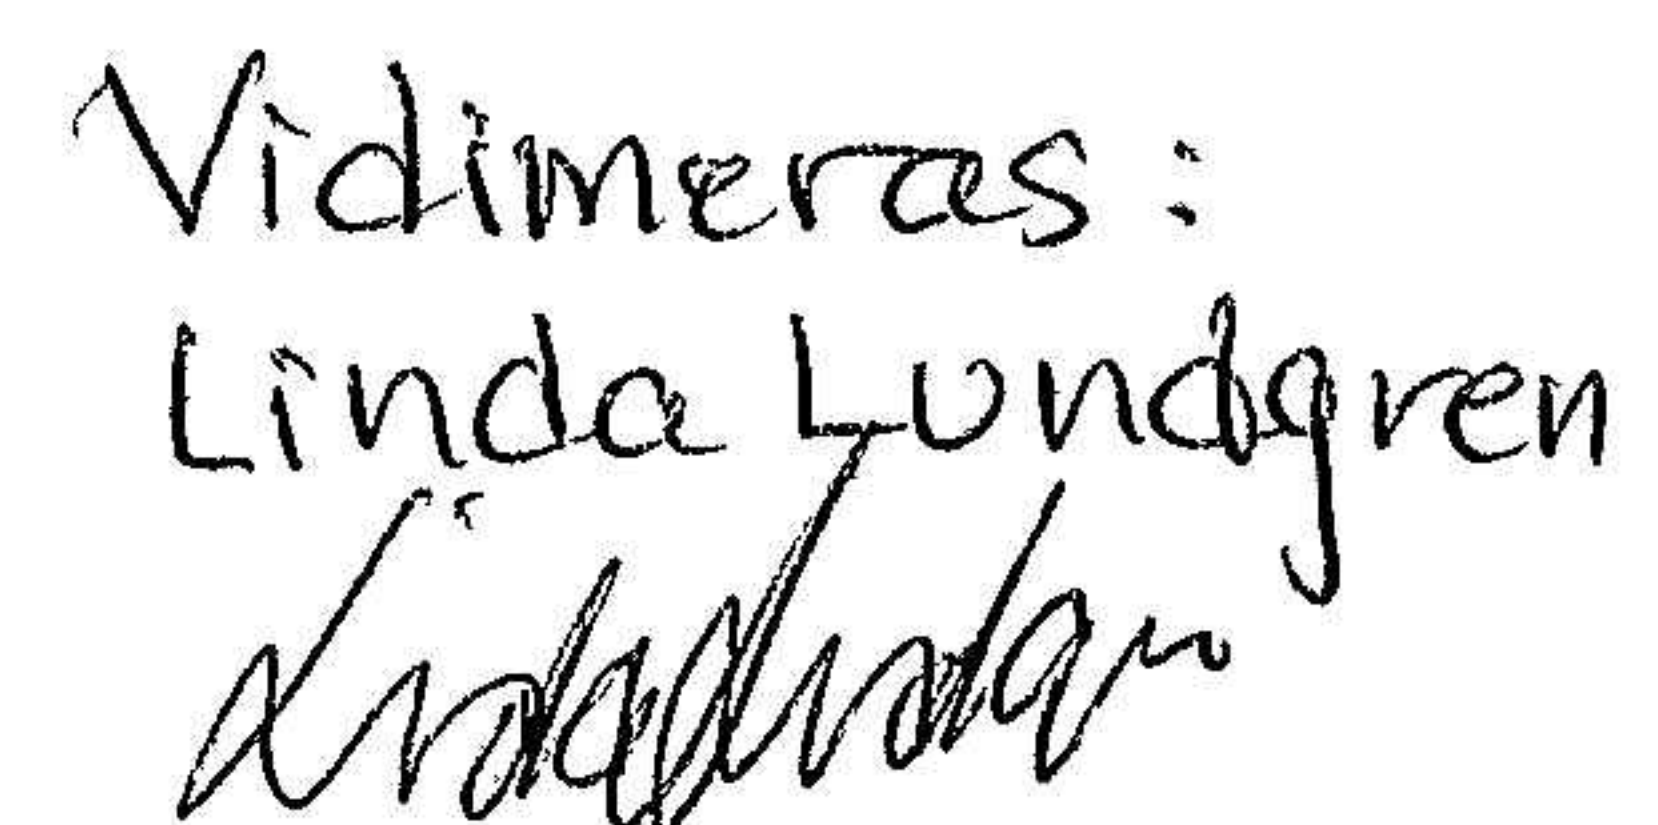 Vidimeras:
Linda Lundgren